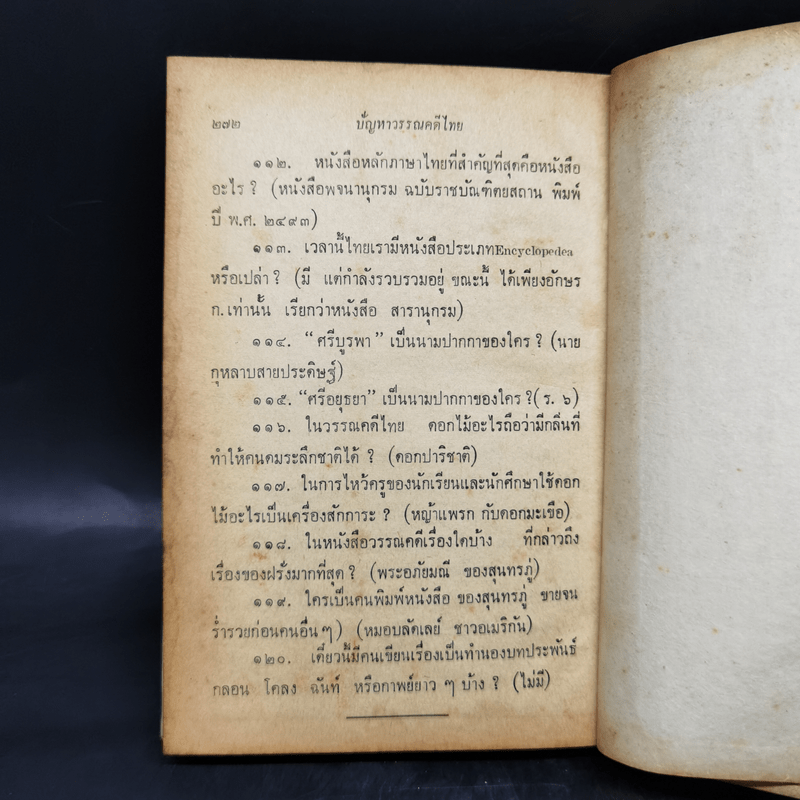 ๒๗๒ ปัญหาวรรณคดีไทย
๑๑๒. หนังสือหลักภาษาไทยที่สำคัญที่สุดคือหนังสือ
อะไร ? (หนังสือพจนานุกรม ฉบับราชบัณฑิตยสถาน พิมพ์
ปี พ.ศ. ๒๔๙๓)
๑๑๓. เวลานี้ไทยเรามีหนังสือประเภทEncyclopedea
หรือเปล่า ? (มี แต่กำลังรวบรวมอยู่ ขณะนี้ ได้เพียงอักษร
ก. เท่านั้น เรียกว่าหนังสือ สารานุกรม)
๑๑๔. “ศรีบูรพา” เป็นนามปากกาของใคร ? (นาย
กุหลาบสายประดิษฐ์)
๑๑๕. “ศรีอยุธยา” เป็นนามปากกาของใคร ?( ร. ๖)
๑๑๖. ในวรรณคดีไทย ดอกไม้อะไรถือว่ามีกลิ่นที่
ทำให้คนดมระลึกชาติได้ ? (ดอกปาริชาติ)
๑๑๗. ในการไหว้ครูของนักเรียนและนักศึกษาใช้ดอก
ไม้อะไรเป็นเครื่องสักการะ ? (หญ้าแพรก กับดอกมะเขือ)
๑๑๘. ในหนังสือวรรณคดีเรื่องใดบ้าง ที่กล่าวถึง
เรื่องของฝรั่งมากที่สุด ? (พระอภัยมณี ของสุนทรภู่)
๑๑๙. ใครเป็นคนพิมพ์หนังสือ ของสุนทรภู่ ขายจน
ร่ำรวยก่อนคนอื่น ๆ) (หมอบลัดเลย์ ชาวอเมริกัน)
๑๒๐. เดี๋ยวนี้มีคนเขียนเรื่องเป็นทำนองบทประพันธ์
กลอน โคลง ฉันท์ หรือกาพย์ยาว ๆ บ้าง ? (ไม่มี)